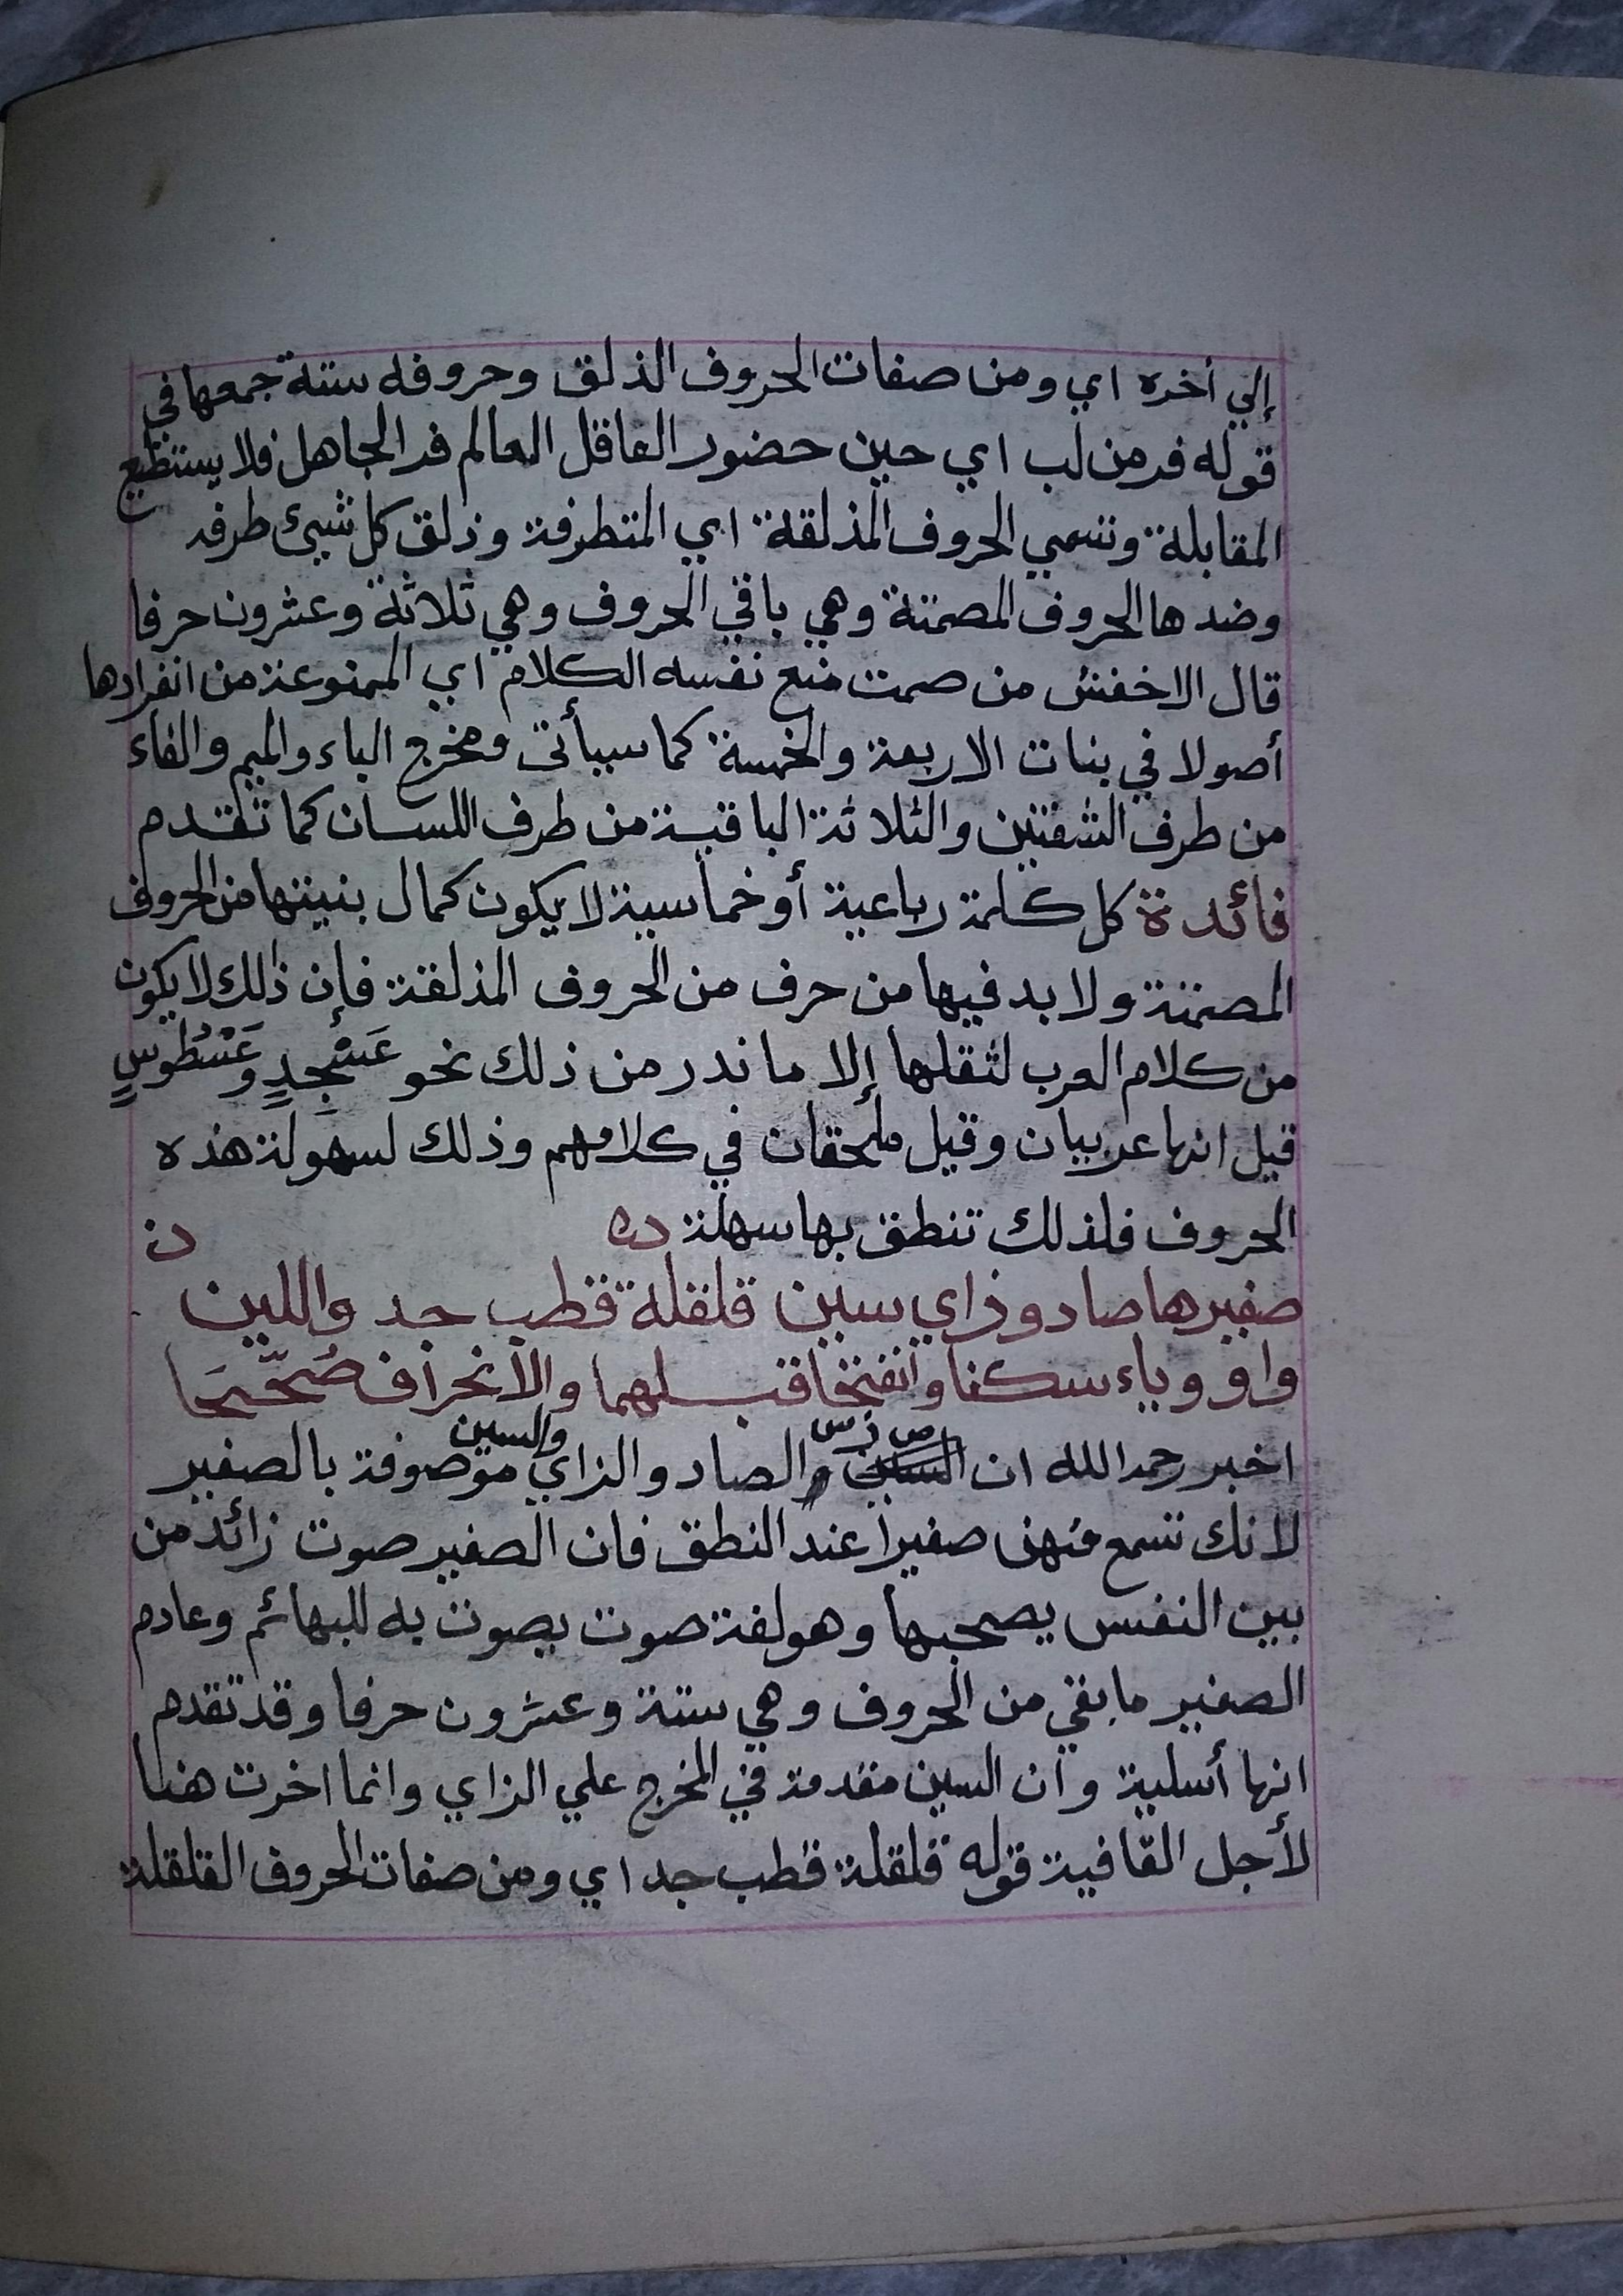 إلي أخره اي ومن صفات الحروف الذلق وحروفه ستة جمعها في
قوله فر من لب اي حين حضور العاقل العالم فر الجاهل فلا يستطيع
المقابلة وتسمي الحروف المذلقة اي المتطرفة وذلق كل شيئ طرفه
وضدها الحروف المصمتة وهي باقي الحروف وهي ثلاثة وعشرون حرفا
قال الاخفش من صمت منع نفسه الكلام اي الممنوعة من انفرادها
أصولا في بنات الاربعة والخمسة كما سيأتى ومخرج الباء والميم والفاء
من طرف الشفتين والثلاثة الباقية من طرف اللسان كما تقدم
فائدة كل كلمة رباعية أو خماسية لا يكون كمال بنيتها من الحروف
المصمتة ولا بد فيها من حرف من الحروف المذلقة فإن ذلك لا يكون
من كلام العرب لثقلها إلا ما ندر من ذلك نحو عَسْجِدٍ وعَسْطُوسٍ
قيل انها عربيان وقيل ملحقان في كلامهم وذلك لسهولة هذه
الحروف فلذلك تنطق بها سهلة
صفيرها صاد وزاي سين قلقلة قطب جد واللين
واو وياء سكنا وانفتحا قبلهما والانحراف صُحِّحَا
اخبر رحمه الله ان ص ز س والصاد والزاي والسين موصوفة بالصفير
لانك تسمع منهن صفيرا عند النطق فان الصفير صوت زائد من
بين النفس يصحبها وهو لغة صوت يصوت به للبهائم وعادم
الصفير ما بقي من الحروف وهي ستة وعشرون حرفا وقد تقدم
انها أسلية وان السين مقدمة في المخرج علي الزاي وانما اخرت هنا
لأجل القافية قوله قلقلة قطب جد اي ومن صفات الحروف القلقلة